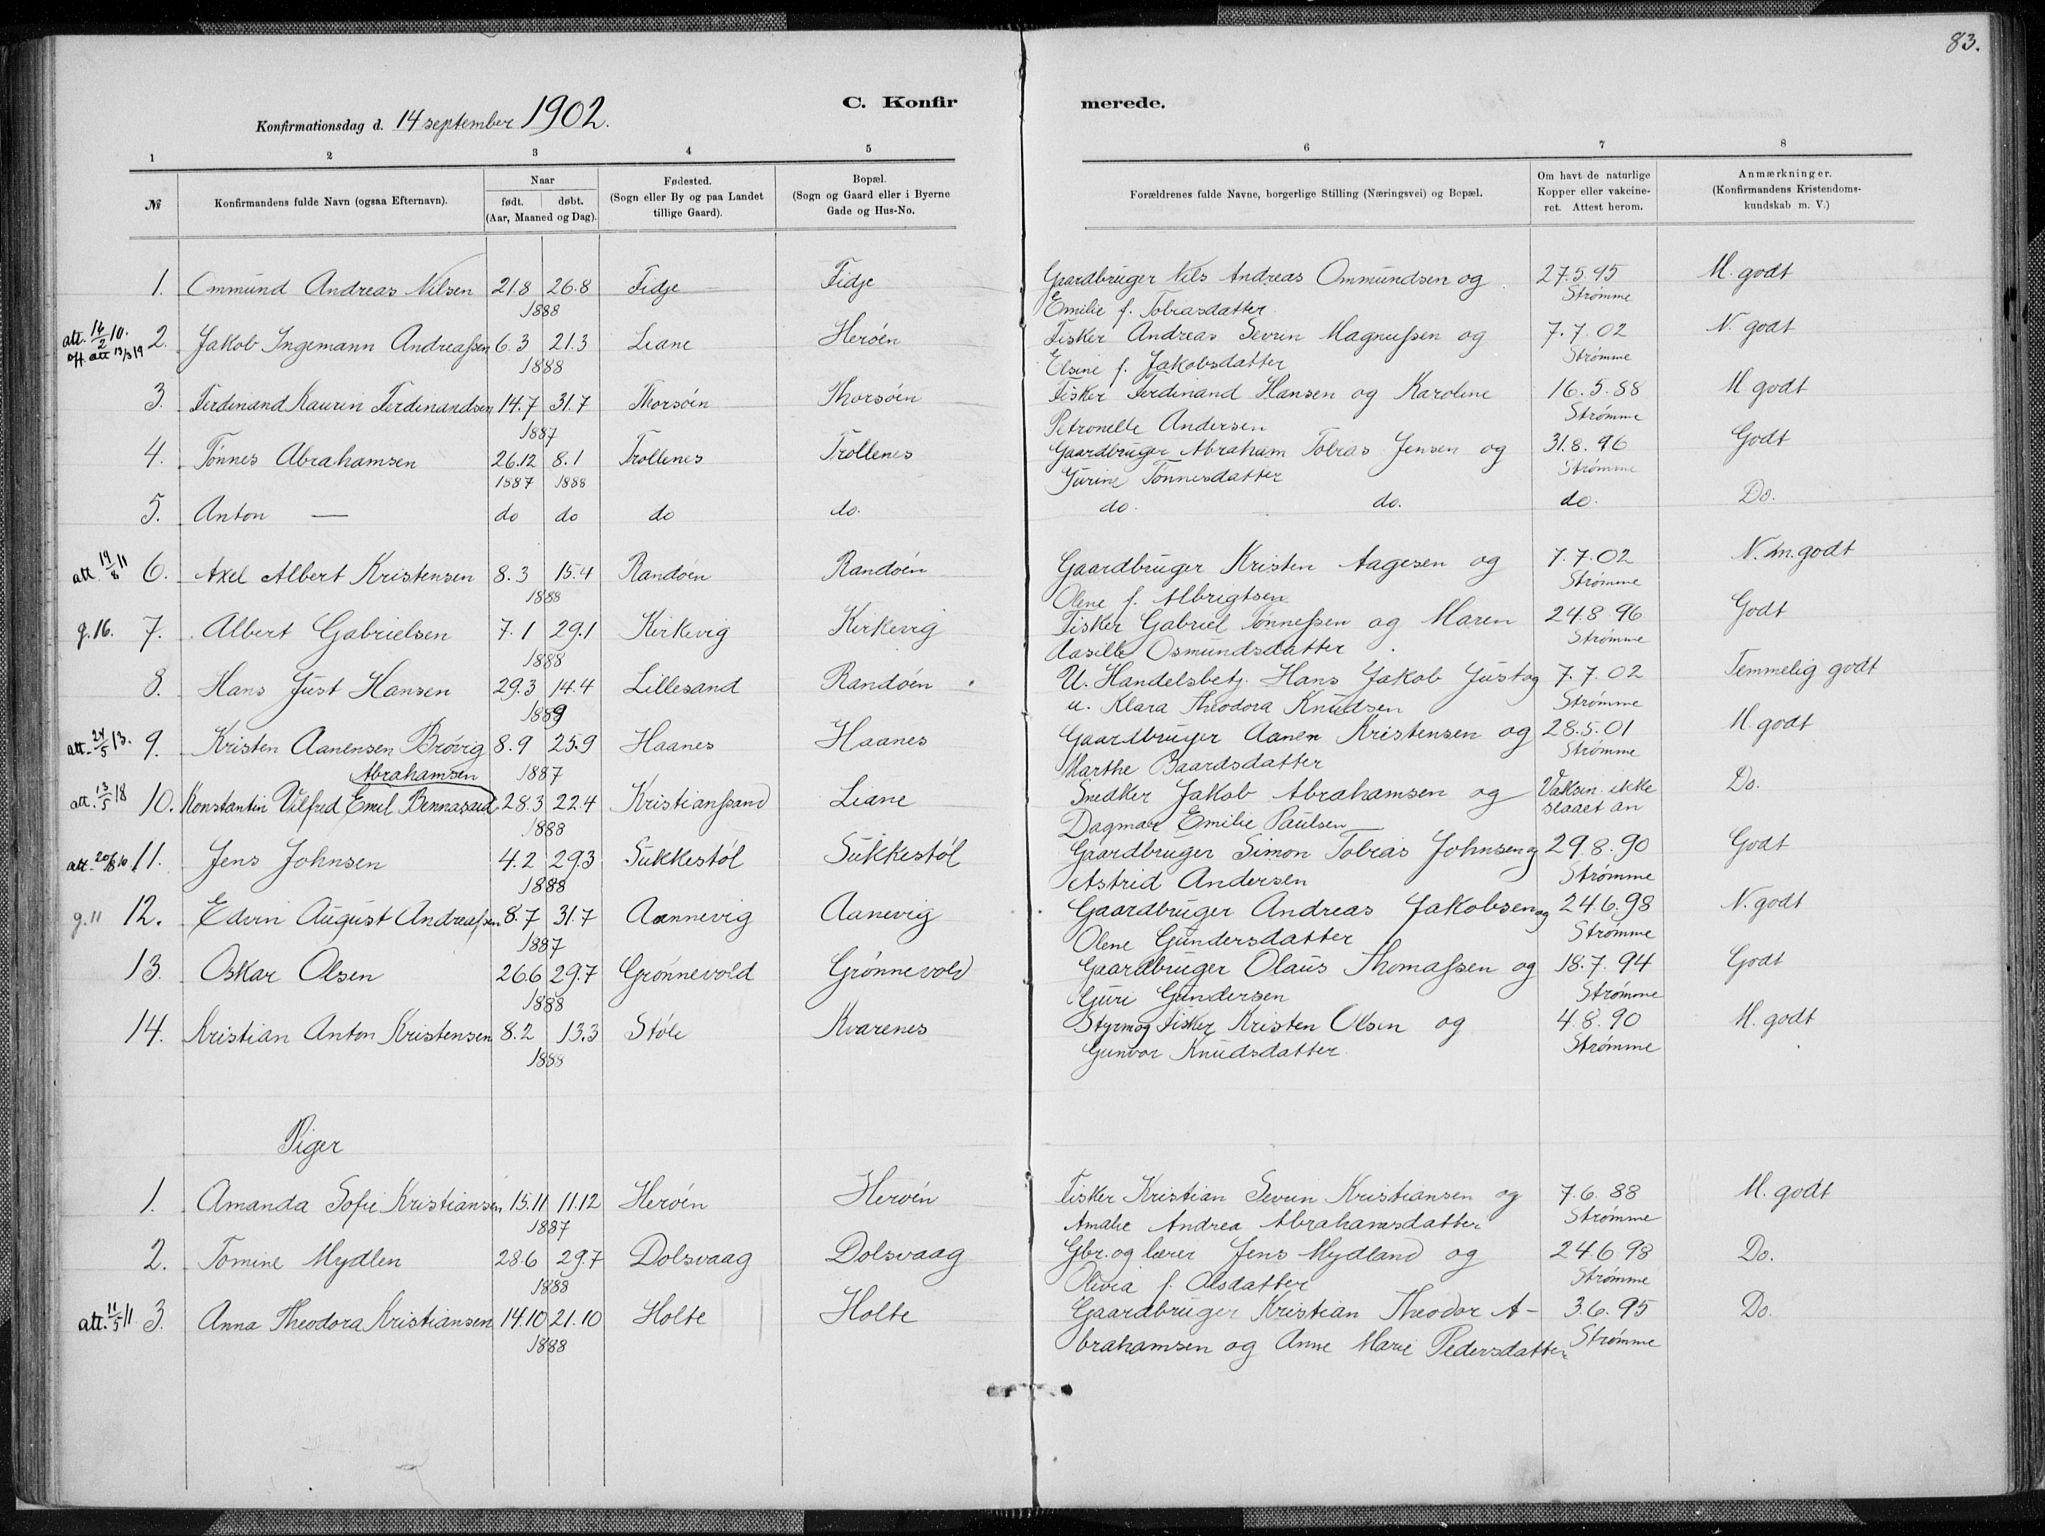 83.
C. Konfirmerede.
Konfirmationsdag d. 14 september 1902.
1 2 3 4 5 6 7 8
№ Konfirmandens fulde Navn (ogsaa Efternavn). Naar født. døbt. (Aar, Maaned og Dag). Fødested. (Sogn eller By og paa Landet tillige Gaard). Bopæl. (Sogn og Gaard eller i Byerne Gade og Hus-No. Forældrenes fulde Navne, borgerlige Stilling (Næringsvei) og Bopæl. Om havt de naturlige Kopper eller vakcineret. Attest herom. Anmærkninger. (Konfirmandens Kristendomskundskab m. V.)
1. Ommund Andreas Nilsen 21.8 26.8 Fidje Fidje Gaardbruger Nils Andreas Ommundsen og 27.5.95 M. godt
1888 Emilie f. Tobiasdatter. Strømme
att. 14/2 10. off. att 13/3 19 2. Jakob Ingemann Andreassen 6.3 21.3 Liane Herøen Fisker Andreas Severin Magnussen og 7.7.02 N. godt
1888 Elsine f. Jakobsdatter Strømme
3. Ferdinand Laurin Ferdinandsen 14.7 31.7 Thorsøen Thorsøen Fisker Ferdinand Hansen og Karoline 16.5.88 M. godt
1887 Petronelle Andersen Strømme
4. Tønnes Abrahamsen 26.12 8.1 Trollenes Trollenes Gaardbruger Abraham Tobias Jensen og 31.8.96 Godt
1887 1888 Gurine Tønnesdatter Strømme
5. Anton — do do do do. do. do. do. Do.
att. 19/8 11 6. Axel Albert Kristensen 8.3 15.4 Randøen Randøen Gaardbruger Kristen Aagesen og 7.7.02 N. m. godt
1888 Olene f. Albrigtsen Strømme
g. 16. 7. Albert Gabrielsen 7.1 29.1 Kirkevig Kirkevig Fisker Gabriel Tønnessen og Maren 24.8.96 Godt
1888 Aasille Osmundsdatter Strømme
8. Hans Just Hansen 29.3 14.4 Lillesand Randøen U. Handelsbetj. Hans Jakob Just og 7.7.02 Temmelig godt
1889 u. Klara Theodora Knudsen Strømme
att. 24/5 13. 9. Kristen Aanensen Brøvig 8.9 25.9 Haanes Haanes Gaardbruger Aanen Kristensen og 28.5.01 M. godt
1887 Marthe Baardsdatter Strømme
Abrahamsen
att. 13/5 18 10. Konstantin Vilfred Emil Bennasaid 28.3 22.4 Kristianssand Liane Snedker Jakob Abrahamsen og Vaksin. ikke Do.
1888 Dagmar Emilie Paulsen slaaet an
att. 20/8 10 11. Jens Johnsen 4.2 29.3 Sukkestøl Sukkestøl Gaardbruger Simon Tobias Johnsen og 29.8.90 Godt
1888 Astrid Andersen Strømme
g. 11 12. Edvin August Andreassen 8.7 31.7 Aannevig Aanevig Gaardbruger Andreas Jakobsen og 24.6.98 N. godt
1887 Olene Gundersdatter Strømme
13. Oskar Olsen 26.6 29.7 Grønnevold Grønnevold Gaardbruger Olaus Thomassen og 18.7.94 Godt
1888 Guri Gundersen Strømme
14. Kristian Anton Kristensen 8.2 13.3 Støle Kvarenes Styrm og Fisker Kristen Olsen og 4.8.90 M. godt
1888 Gunvor Knudsdatter. Strømme
Piger
1. Amanda Sofie Kristiansen 15.11 11.12 Herøen Herøen Fisker Kristian Severin Kristiansen og 7.6.88 M. godt
1887 Amalie Andrea Abrahamsdatter Strømme
2. Tomine Mydlen 28.6 29.7 Dolsvaag Dolsvaag Gbr. og lærer Jens Mydland og 24.6.98 Do.
1888 Olivia f. Olsdatter Strømme
att. 11/5 11 3. Anna Theodora Kristiansen 14.10 21.10 Holte Holte Gaardbruger Kristian Theodor A- 3.6.95 Do.
1888 brahamsen og Anne Marie Pedersdatter Strømme